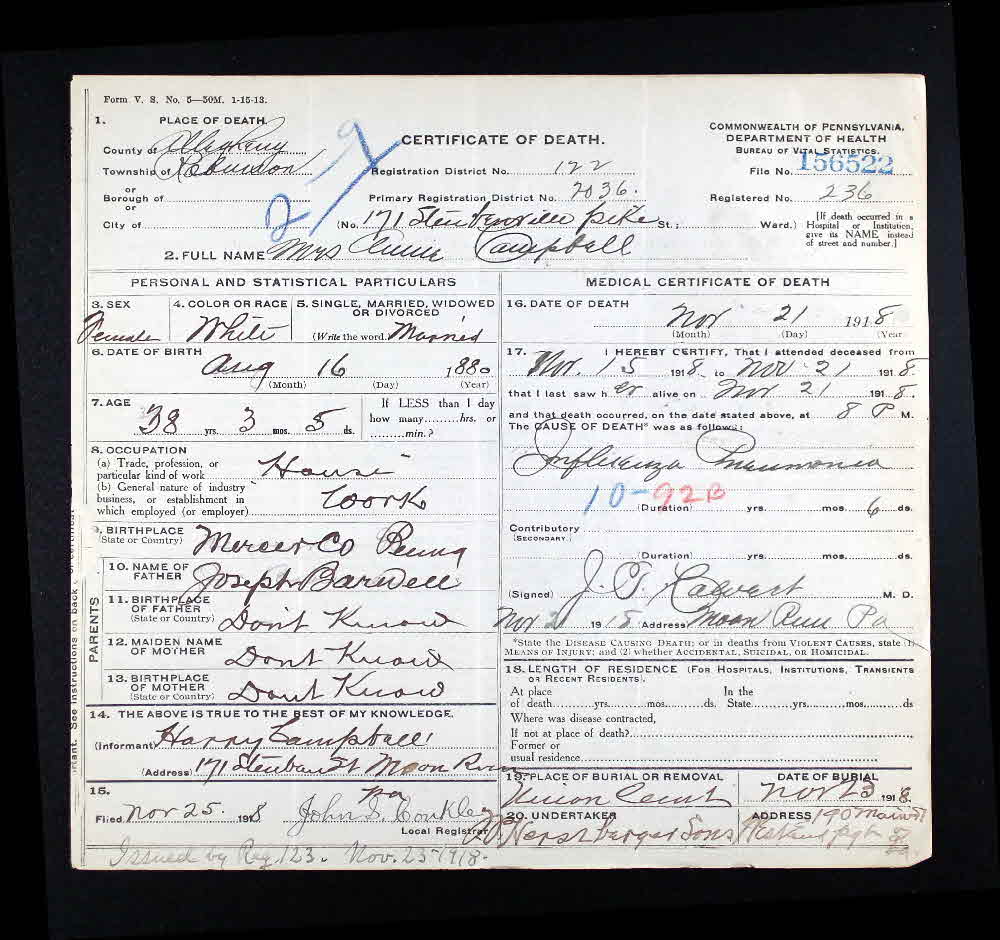 Form V. S. No. 5—50M. 1-15-13.
1. PLACE OF DEATH.
County of Allegheny
Township of Robinson
or
Borough of
or
City of
CERTIFICATE OF DEATH.
Registration District No. 122
Primary Registration District No. 2036.
(No. 171 Steubenville pike St.; Ward.)
COMMONWEALTH OF PENNSYLVANIA.
DEPARTMENT OF HEALTH
BUREAU OF VITAL STATISTICS.
File No. 156522
Registered No. 236
[If death occurred in a Hospital or Institution, give its NAME instead of street and number.]
2. FULL NAME Mrs Annie Campbell
PERSONAL AND STATISTICAL PARTICULARS
3. SEX
Female
4. COLOR OR RACE
White
5. SINGLE, MARRIED, WIDOWED OR DIVORCED
(Write the word.) Married
6. DATE OF BIRTH
Aug 16 1880
(Month) (Day) (Year)
7. AGE
38 yrs. 3 mos. 5 ds.
If LESS than 1 day
how many.........hrs. or
.........min.?
8. OCCUPATION
(a) Trade, profession, or
particular kind of work House
(b) General nature of industry
business, or establishment in
which employed (or employer) Work
9. BIRTHPLACE
(State or Country) Mercer Co Penna
PARENTS
10. NAME OF
FATHER Joseph
11. BIRTHPLACE
OF FATHER
(State or Country) Don't Know
12. MAIDEN NAME
OF MOTHER Dont Know
13. BIRTHPLACE
OF MOTHER
(State or Country) Dont Know
14. THE ABOVE IS TRUE TO THE BEST OF MY KNOWLEDGE.
(Informant) Harry Campbell
(Address) 171 Steuben St Moon Run
Pa
15.
Filed Nov 25. 1918 John S. Conkle
Local Registrar
Issued by Reg 123. Nov. 23-1918.
MEDICAL CERTIFICATE OF DEATH
16. DATE OF DEATH
Nov 21 1918
(Month) (Day) (Year)
17. I HEREBY CERTIFY, That I attended deceased from
Nov. 15 1918. to Nov 21 1918.
that I last saw her alive on Nov 21 1918.
and that death occurred, on the date stated above, at 8 P M.
The CAUSE OF DEATH* was as follows:
Influenza Pneumonia
10-92B
(Duration) yrs. mos. 6 ds.
Contributory
(SECONDARY.)
(Duration) yrs. mos. ds.
(Signed) Calvert M. D.
Address Moon Run Pa
*State the DISEASE CAUSING DEATH; or in deaths from VIOLENT CAUSES, state (1) MEANS OF INJURY; and (2) whether ACCIDENTAL, SUICIDAL, OR HOMICIDAL.
18. LENGTH OF RESIDENCE (FOR HOSPITALS, INSTITUTIONS, TRANSIENTS OR RECENT RESIDENTS).
At place In the
of death.......yrs.......mos.......ds. State.......yrs.......mos.......ds
Where was disease contracted,
If not at place of death?
Former or
usual residence
19. PLACE OF BURIAL OR REMOVAL
Union Cemt
DATE OF BURIAL
Nov 23 1918.
20. UNDERTAKER
Hershberger Sons
ADDRESS 190 Main St